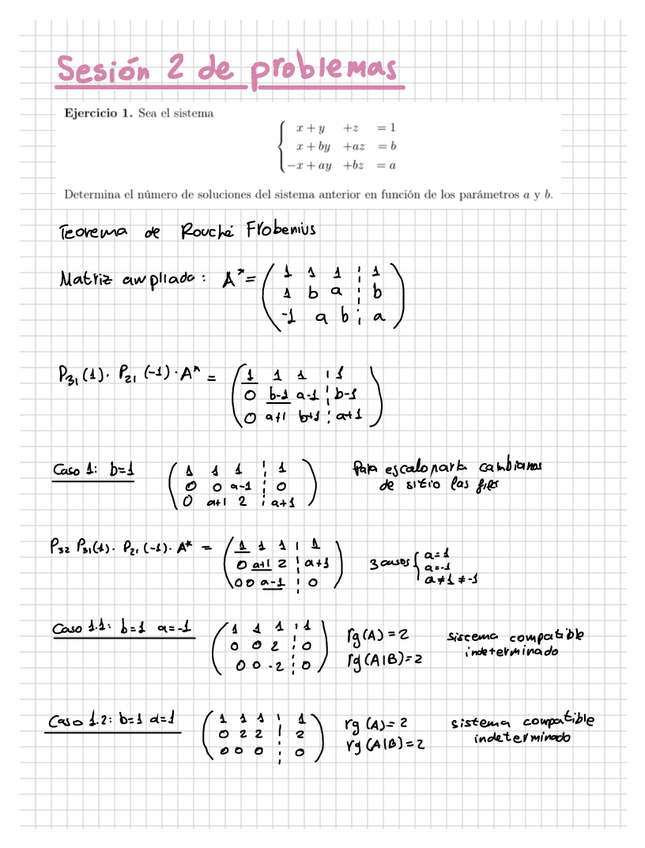 Sesión 2 de problemas
Ejercicio 1. Sea el sistema
x + y +z = 1
x + by +az = b
−x + ay +bz = a
Determina el número de soluciones del sistema anterior en función de los parámetros a y b.
Teorema de Rouché Frobenius
Matriz ampliada: A* = ( 1 1 1 ¦ 1
1 b a ¦ b
-1 a b ¦ a )
P31(1). P21(-1). A* = ( 1 1 1 ¦ 1
0 b-1 a-1 ¦ b-1
0 a+1 b+1 ¦ a+1 )
Caso 1: b=1 ( 1 1 1 ¦ 1
0 0 a-1 ¦ 0
0 a+1 2 ¦ a+1 )
Para escalonarla cambiamos
de sitio las filas
P32 P31(1). P21(-1). A* = ( 1 1 1 ¦ 1
0 a+1 2 ¦ a+1
0 0 a-1 ¦ 0 )
3 casos { a=1
a=-1
a≠1≠-1
Caso 1.1: b=1 a=-1 ( 1 1 1 ¦ 1
0 0 2 ¦ 0
0 0 -2 ¦ 0 )
rg(A)=2
rg(A|B)=2
sistema compatible
indeterminado
Caso 1.2: b=1 a=1 ( 1 1 1 ¦ 1
0 2 2 ¦ 2
0 0 0 ¦ 0 )
rg(A)=2
rg(A|B)=2
sistema compatible
indeterminado